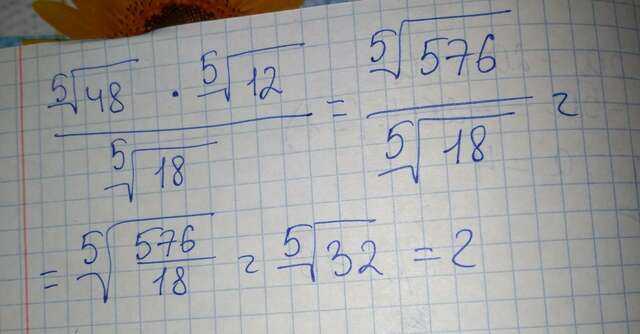 ⁵√48 · ⁵√12 / ⁵√18 = ⁵√576 / ⁵√18 =
= ⁵√(576/18) = ⁵√32 = 2